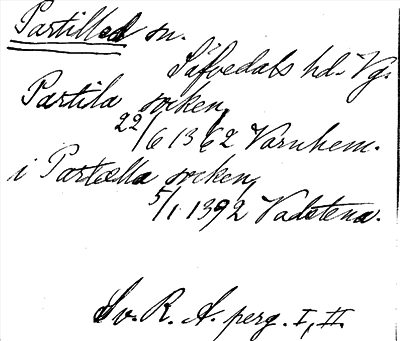 Partilled sn.
Säfvedals hd. Vg.
Partila socken
22/6 1362 Varnhem.
i Partælla socken
5/1 1392 Vadstena.
Sv. R. A. perg. I, II.